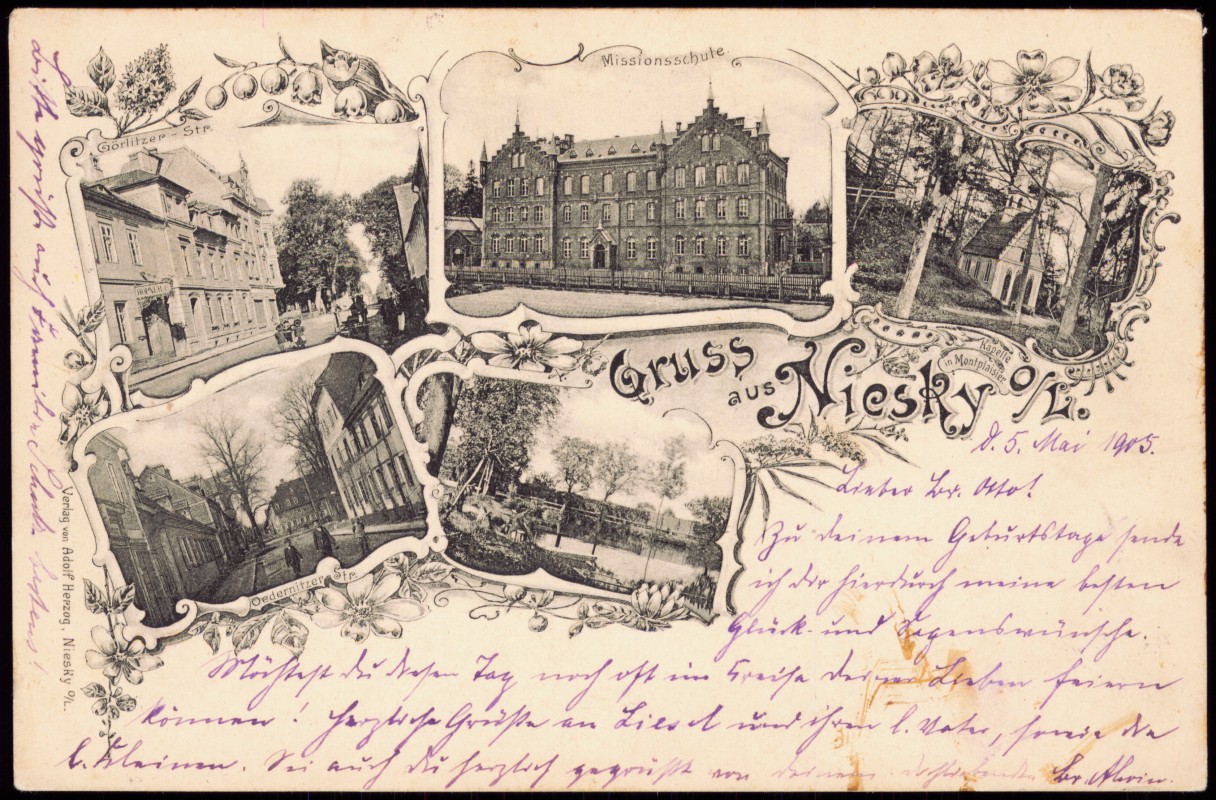 Missionsschule.
Görlitzer-Str.
Kapelle
in Montplaisier.
Gruss
aus Niesky O/L.
Oedernitzer Str.
Verlag von Adolf Herzog, Niesky O/L.
d. 5. Mai 1905.
Lieber Br. Otto!
Zu deinem Geburtstage sende
ich dir hierdurch meine besten
Glück- und Segenswünsche.
Möchtest du diesen Tag noch oft im Kreise deiner Lieben feiern
können! Herzliche Grüße an Liesel und ihren l. Vater, sowie die
l. Kleinen. Sei auch du herzlich gegrüßt von deinem Br. Alwin.
Bitte grüßt auch bestens!